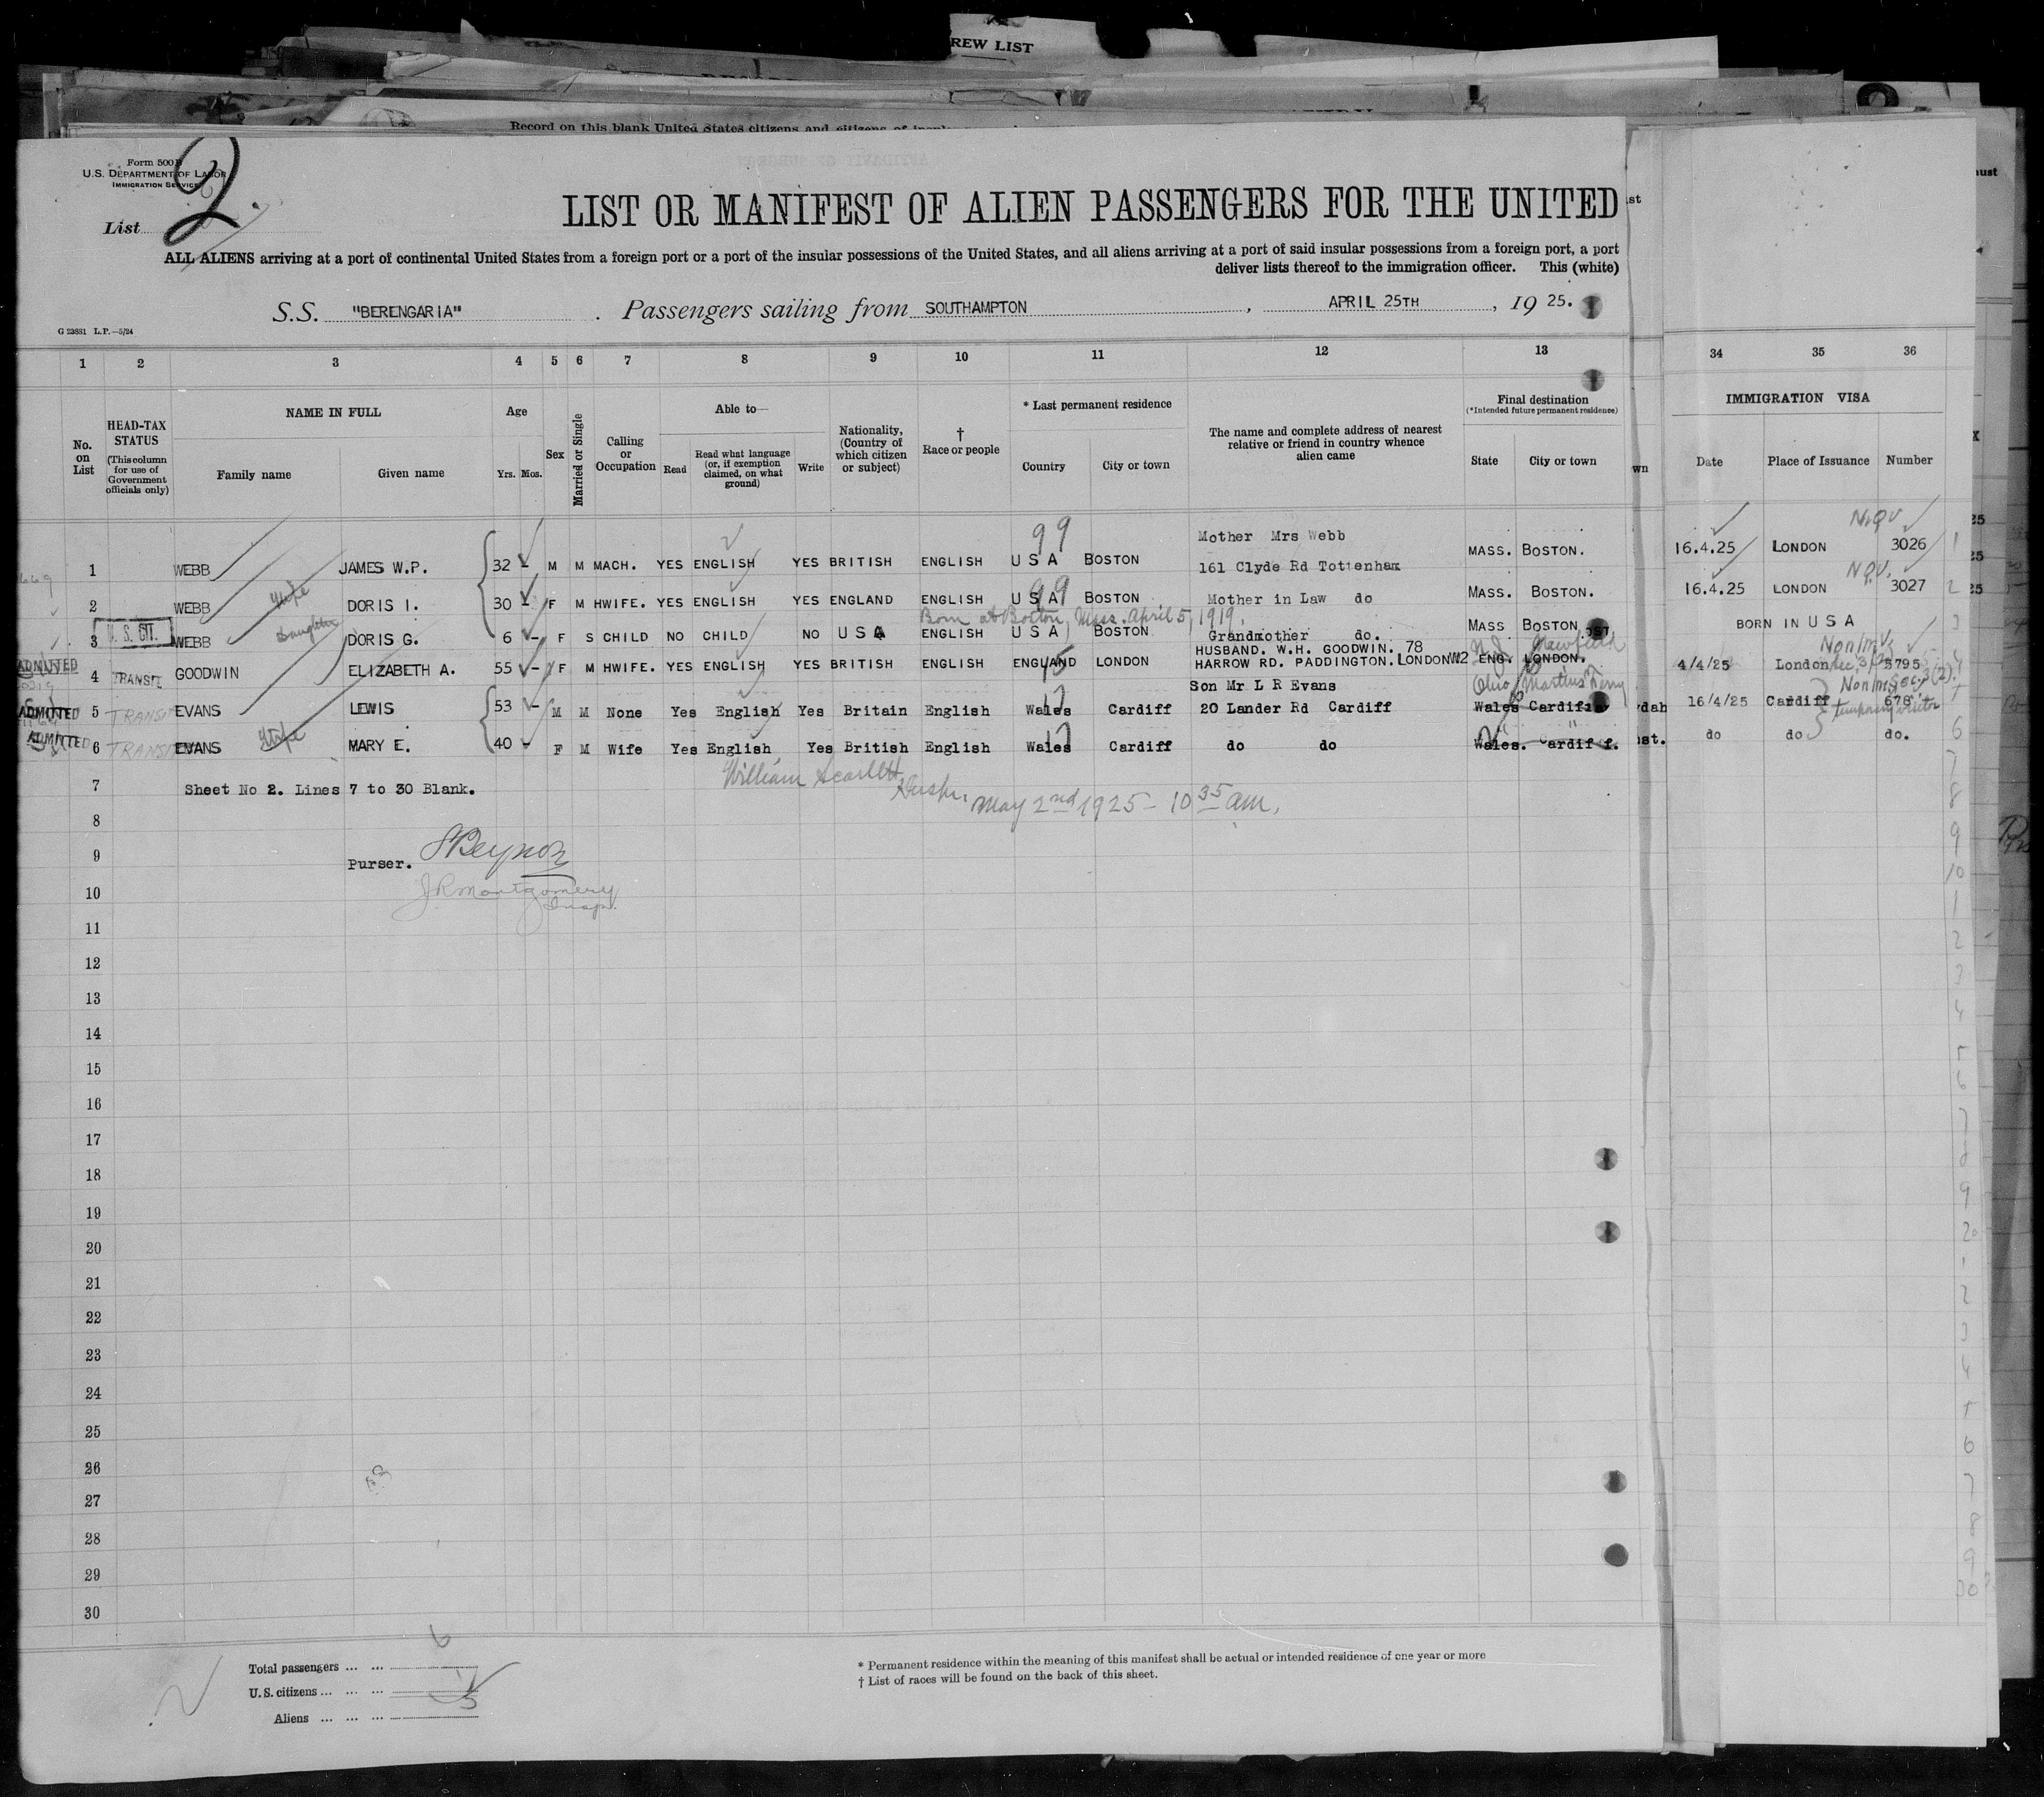 REW LIST
Record on this blank United States citizens and citizens of
Form 500 B
U.S. DEPARTMENT OF LABOR
IMMIGRATION SERVICE
List 2.
LIST OR MANIFEST OF ALIEN PASSENGERS FOR THE UNITED
ALL ALIENS arriving at a port of continental United States from a foreign port or a port of the insular possessions of the United States, and all aliens arriving at a port of said insular possessions from a foreign port, a port
deliver lists thereof to the immigration officer. This (white)
S.S. "BERENGARIA" . Passengers sailing from SOUTHAMPTON , APRIL 25TH , 19 25.
G 23881 L.P.—5/24
1 2 3 4 5 6 7 8 9 10 11 12 13 34 35 36
No. on List
HEAD-TAX STATUS (This column for use of Government officials only)
NAME IN FULL
Family name Given name
Age
Yrs. Mos.
Sex
Married or Single
Calling or Occupation
Able to—
Read
Read what language (or, if exemption claimed, on what ground)
Write
Nationality, (Country of which citizen or subject)
† Race or people
* Last permanent residence
Country City or town
The name and complete address of nearest relative or friend in country whence alien came
Final destination
(*Intended future permanent residence)
State City or town
IMMIGRATION VISA
Date Place of Issuance Number
99 Mother Mrs Webb N.Q.V.
1 WEBB JAMES W.P. 32 M M MACH. YES ENGLISH YES BRITISH ENGLISH U S A BOSTON 161 Clyde Rd Tottenham MASS. BOSTON. 16.4.25 LONDON 3026
99 N.Q.V.
2 WEBB Wife DORIS I. 30 F M HWIFE. YES ENGLISH YES ENGLAND ENGLISH U S A BOSTON Mother in Law do MASS. BOSTON. 16.4.25 LONDON 3027
Born at Boston, Mass. April 5, 1919.
3 U. S. CIT. WEBB Daughter DORIS G. 6 F S CHILD NO CHILD NO U S A ENGLISH U S A BOSTON Grandmother do. MASS BOSTON BORN IN U S A
HUSBAND. W.H. GOODWIN. 78 N.J.
ADMITTED 4 TRANSIT GOODWIN ELIZABETH A. 55 F M HWIFE. YES ENGLISH YES BRITISH ENGLISH ENGLAND LONDON HARROW RD. PADDINGTON. LONDON W2 ENG. LONDON. 4/4/25 London 5795
Son Mr L R Evans Ohio Martins Ferry
ADMITTED 5 TRANSIT EVANS LEWIS 53 M M None Yes English Yes Britain English Wales Cardiff 20 Lander Rd Cardiff Wales Cardiff 16/4/25 Cardiff 678 temporary visitor
ADMITTED 6 TRANSIT EVANS Wife MARY E. 40 F M Wife Yes English Yes British English Wales Cardiff do do Wales. Cardiff. do do do.
7 Sheet No 2. Lines 7 to 30 Blank.
William Scarlett
May 2nd 1925 - 10 35 am.
8
9 Purser. Beynon
10 J.R. Montgomery
Insp.
11
12
13
14
15
16
17
18
19
20
21
22
23
24
25
26
27
28
29
30
Total passengers ... ... 6
U.S. citizens ... ... ... 1
Aliens ... ... ... 5
* Permanent residence within the meaning of this manifest shall be actual or intended residence of one year or more
† List of races will be found on the back of this sheet.